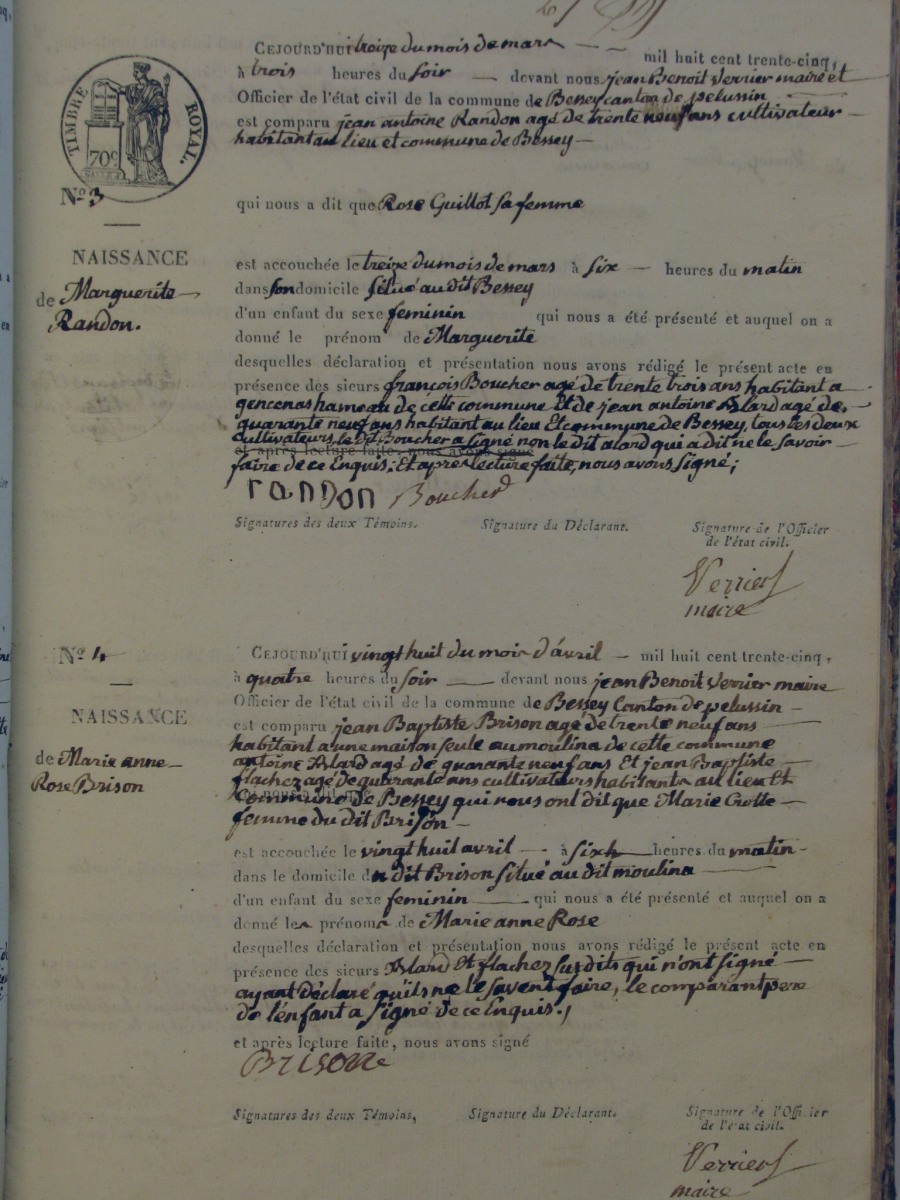 CEJOURD'HUI treize du mois de mars — — mil huit cent trente-cinq,
à trois heures du soir — devant nous jean Benoit Verrier maire et
Officier de l'état civil de la commune de Bessey canton de pelussin
est comparu jean antoine Randon agé de trente neuf ans cultivateur
habitant au lieu et commune de Bessey —
TIMBRE ROYAL.
70c
N.º 3
qui nous a dit que Rose Guillot sa femme
NAISSANCE
de Marguerite
Randon.
est accouchée le treize du mois de mars à six — heures du matin
dans son domicile situé au dit Bessey
d'un enfant du sexe feminin qui nous a été présenté et auquel on a
donné le prénom de Marguerite
desquelles déclaration et présentation nous avons rédigé le présent acte en
présence des sieurs françois Boucher agé de trente trois ans habitant a
gencenas hameau de cette commune Et de jean antoine Alard agé de
quarante neuf ans habitant au lieu Et commune de Bessey, tous les deux
cultivateurs le dit Boucher a signé non le dit alard qui a dit ne le savoir
et après lecture faite, nous avons signé
faire de ce Enquis; Et après lecture faite, nous avons signé;
randon Boucher
Signatures des deux Témoins. Signature du Déclarant. Signature de l'Officier
de l'état civil.
Verrier
maire
N.º 4
CEJOURD'HUI vingt huit du mois d'avril — mil huit cent trente-cinq,
à quatre heures du soir — devant nous jean Benoit Verrier maire
Officier de l'état civil de la commune de Bessey Canton de pelussin —
NAISSANCE
de Marie anne
Rose Brison
est comparu jean Baptiste Brison agé de trente neuf ans
habitant a une maison seule au moulina de cette commune
antoine Alard agé de quarante neuf ans Et jean Baptiste
flachez agé de quarante ans cultivateurs habitants au lieu Et
Commune de Bessey qui nous ont dit que Marie Crotte
femme du dit Brison —
est accouchée le vingt huit avril — à six h heures du matin
dans le domicile du dit Brison situé au dit moulina
d'un enfant du sexe feminin qui nous a été présenté et auquel on a
donné les prénoms de Marie anne Rose
desquelles déclaration et présentation nous avons rédigé le présent acte en
présence des sieurs Alard Et flachez susdits qui n'ont signé
ayant déclaré qu'ils ne le savent faire, le comparant pere
de l'enfant a signé de ce Enquis.
et après lecture faite, nous avons signé
Brison
Signatures des deux Témoins, Signature du Déclarant. Signature de l'Officier
de l'état civil.
Verrier
maire